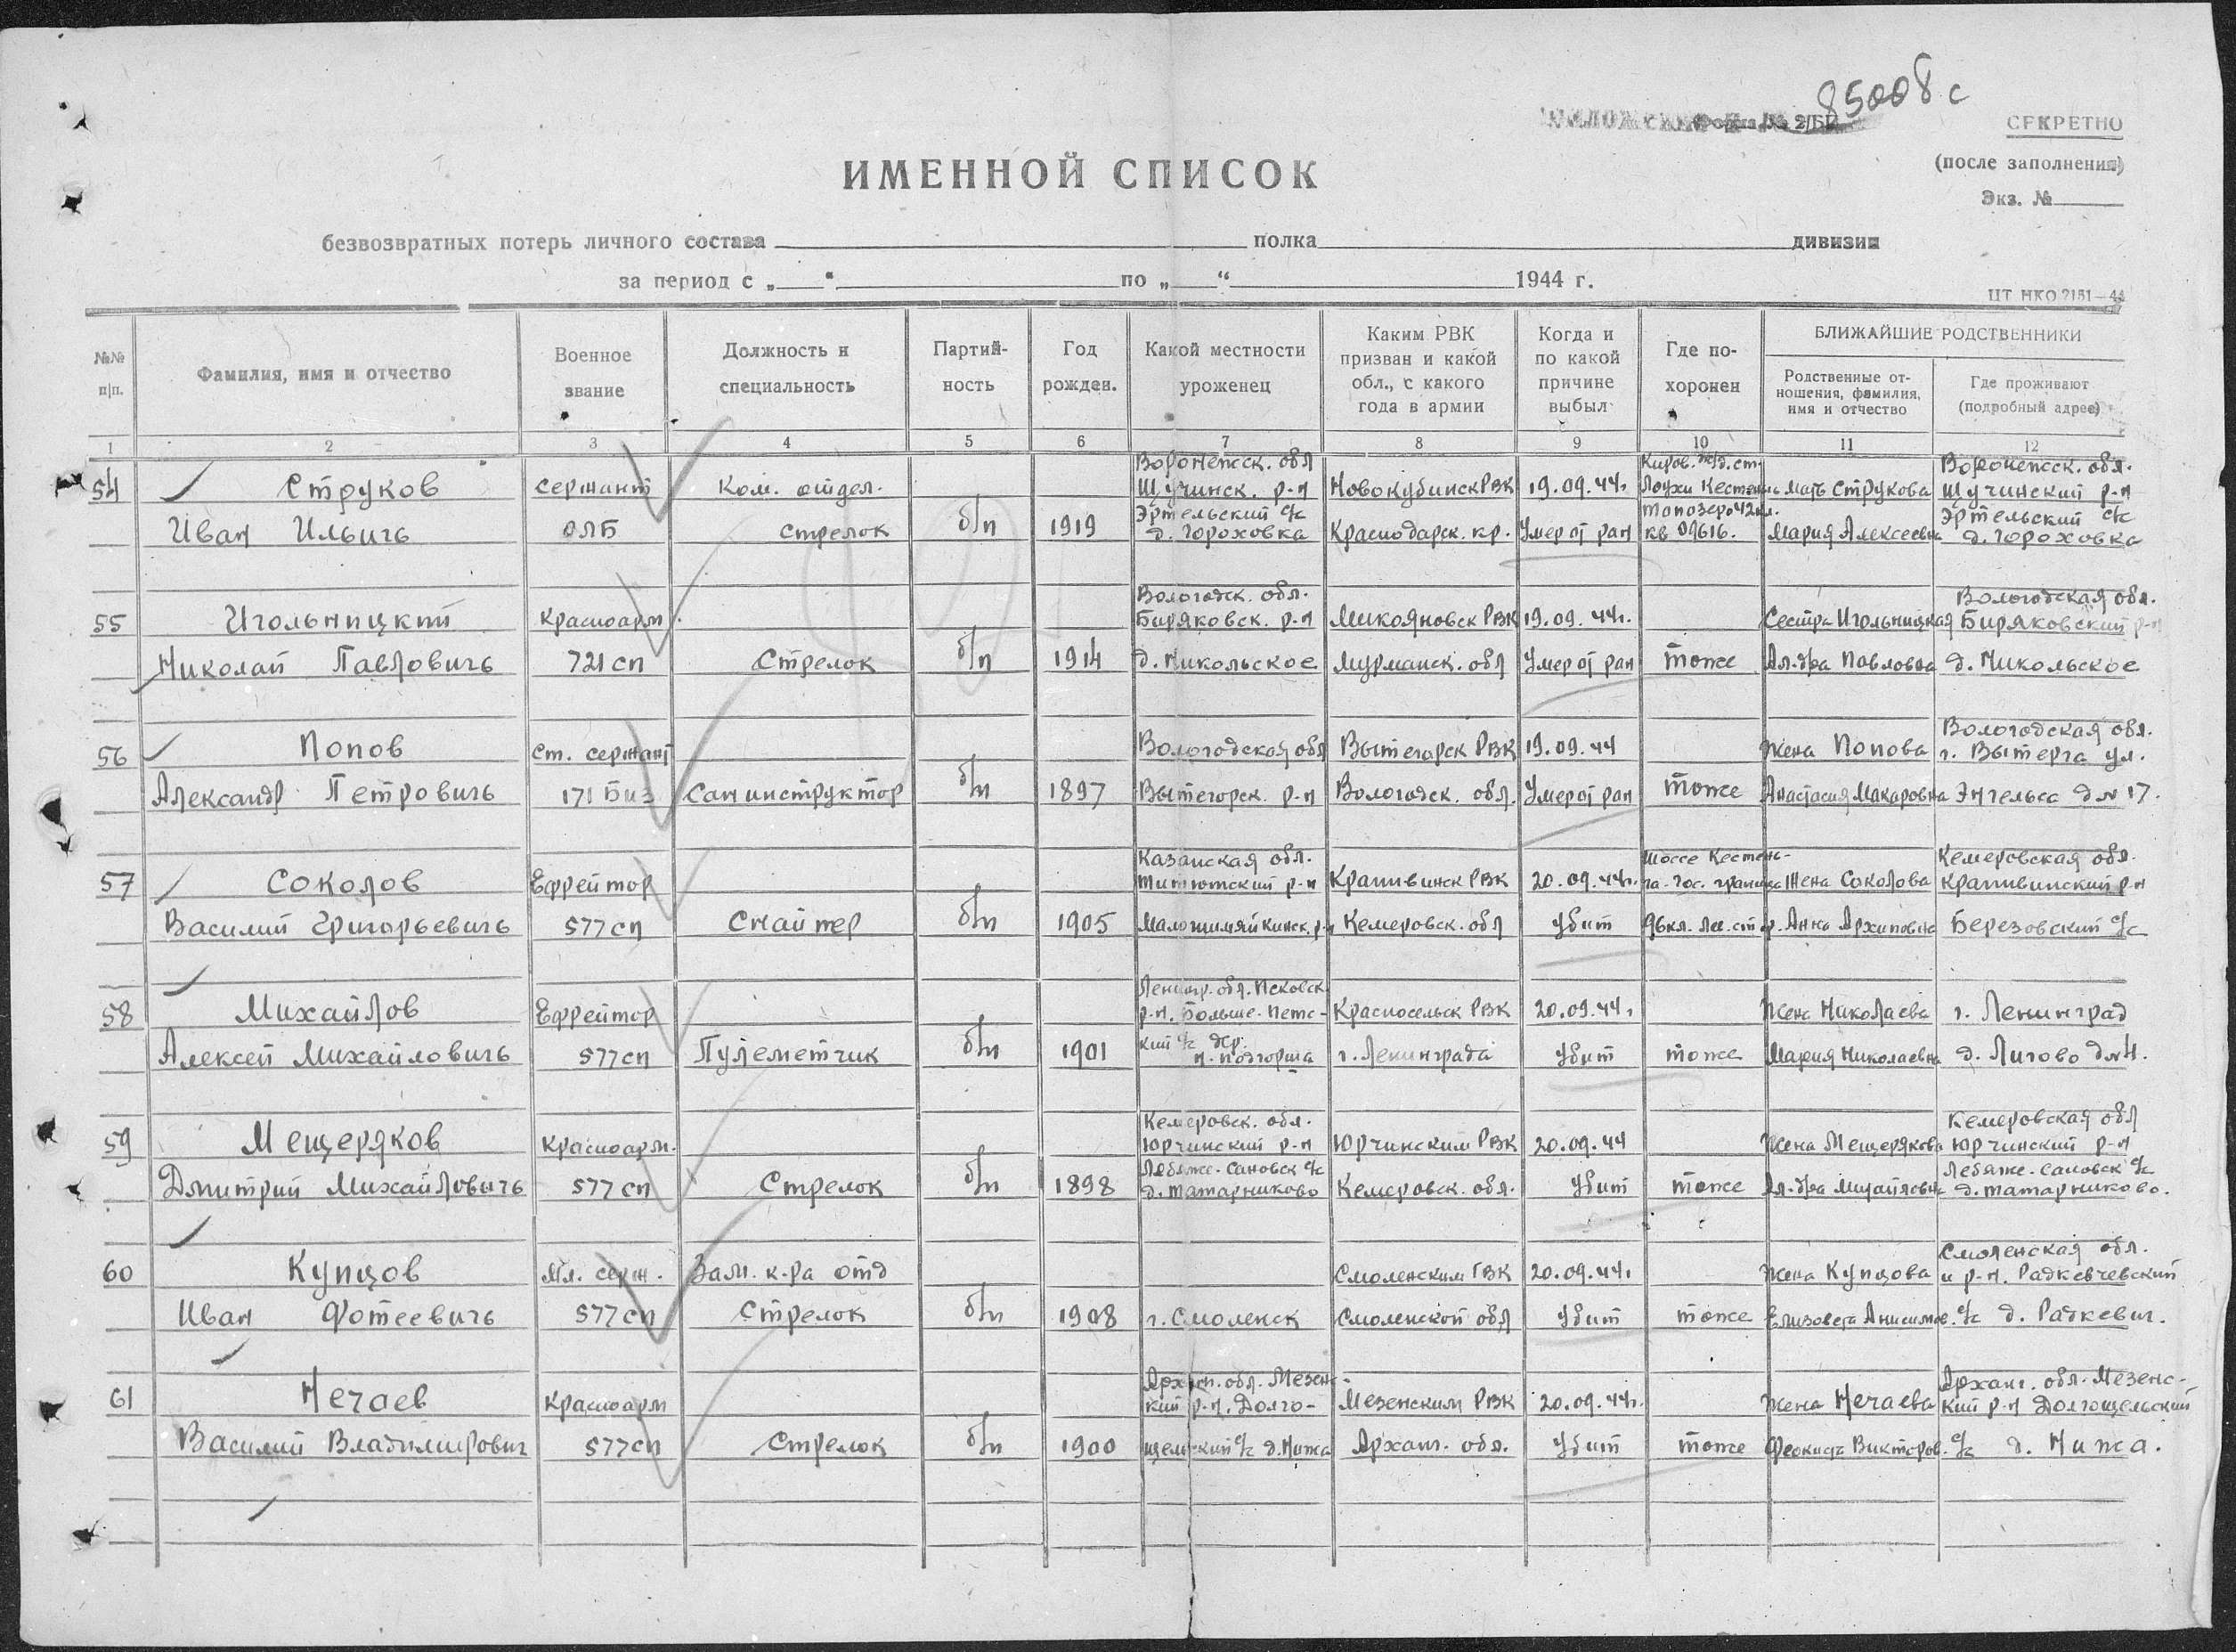 85008с
Форма № 2/БП
СЕКРЕТНО
(после заполнения)
Экз. №
ИМЕННОЙ СПИСОК
безвозвратных потерь личного состава полка дивизии
за период с „ “ по „ “ 1944 г.
ЦТ НКО 2151—44
№№ п/п.
Фамилия, имя и отчество
Военное звание
Должность и специальность
Партий-
ность
Год рожден.
Какой местности уроженец
Каким РВК
призван и какой
обл., с какого
года в армии
Когда и
по какой
причине
выбыл
Где по-
хоронен
БЛИЖАЙШИЕ РОДСТВЕННИКИ
Родственные от-
ношения, фамилия,
имя и отчество
Где проживают
(подробный адрес)
1 2 3 4 5 6 7 8 9 10 11 12
54 Струков
Иван Ильичь
сержант
ОЛБ
Ком. отдел.
стрелок
б/п
1919
Воронежск. обл
Щучинск. р-н
Эртельский с/с
д. Гороховка
Новокубинск РВК
Краснодарск. кр.
19.09.44г.
Умер от ран
Киров. ж/д. ст.
Лоухи Кестеньг
Топозеро 42кл.
кв 09616.
Мать Струкова
Мария Алексеевна
Воронежск. обл.
Щучинский р-н
Эртельский с/с
д. Гороховка
55 Игольницкий
Николай Павловичь
Красноарм.
721 сп
Стрелок
б/п
1914
Вологодск. обл.
Биряковск. р-н
д. Никольское
Микояновск РВК
Мурманск. обл
19.09.44г.
Умер от ран
тоже
Сестра Игольницкая
Ал-дра Павловна
Вологодская обл.
Биряковский р-н
д. Никольское
56 Попов
Александр Петровичь
Ст. сержант
171 Биз
Санинструктор
б/п
1897
Вологодская обл
Вытегорск. р-н
Вытегорск РВК
Вологодск. обл.
19.09.44
Умер от ран
тоже
Жена Попова
Анастасия Макаровна
Вологодская обл.
г. Вытегра ул.
Энгельса д№17.
57 Соколов
Василий Григорьевичь
Ефрейтор
577 сп
Снайпер
б/п
1905
Казанская обл.
р-н
Крапивинск РВК
Кемеровск. обл
20.09.44г.
Убит
шоссе Кестень-
га-гос. граница
96кл.
Жена Соколова
Анна Архиповна
Кемеровская обл.
Крапивинский р-н
Березовский с/с
58 Михайлов
Алексей Михайловичь
Ефрейтор
577 сп
Пулеметчик
б/п
1901
Ленингр. обл. Псковск
р-н. Больше-
кий с/с дер.
Красносельск РВК
г. Ленинграда
20.09.44г
Убит
тоже
Жена Николаева
Мария Николаевна
г. Ленинград
д. Лигово д№4.
59 Мещеряков
Дмитрий Михайловичь
Красноарм.
577 сп
Стрелок
б/п
1898
Кемеровск. обл.
Юрчинский р-н
Лебяже-Сановск с/с
д. Татарниково
Юрчинским РВК
Кемеровск. обл.
20.09.44
Убит
тоже
Жена Мещерякова
Ал-дра Михайловна
Кемеровская обл
Юрчинский р-н
Лебяже-Сановск с/с
д. Татарниково.
60 Купцов
Иван Фотеевичь
Мл. серж.
577 сп
Зам. к-ра отд
Стрелок
б/п
1908
г. Смоленск
Смоленским ГВК
Смоленской обл
20.09.44г
Убит
тоже
Жена Купцова
Елизовета Анисимов.
Смоленская обл.
и р-н. Радкевчевский
с/с д. Радкевич.
61 Нечаев
Василий Владимирович
Красноарм
577 сп
Стрелок
б/п
1900
Арханг. обл. Мезенс-
кий р-н. Долго-
щельский с/с д. Нижа
Мезенским РВК
Арханг. обл.
20.09.44г.
Убит
тоже
Жена Нечаева
Викторов.
Арханг. обл. Мезенс-
кий р-н Долгощельский
с/с д. Нижа.